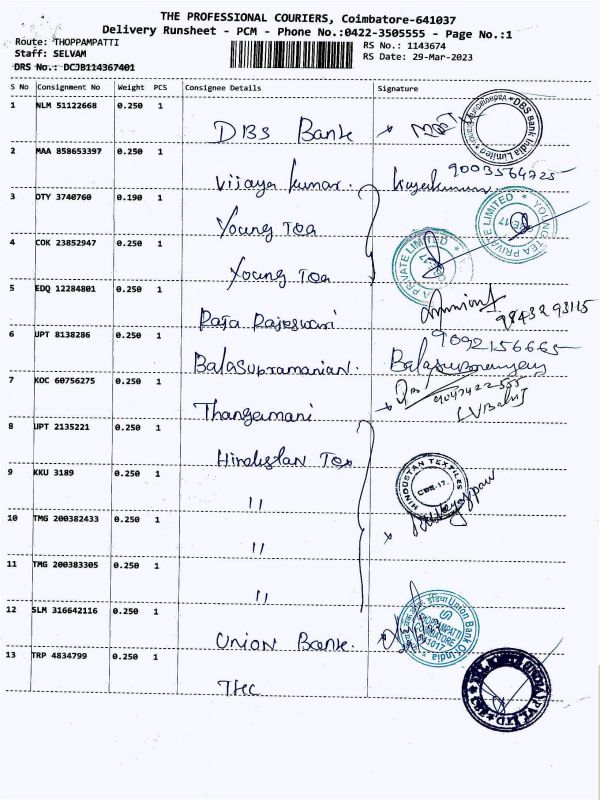 THE PROFESSIONAL COURIERS, Coimbatore-641037
Delivery Runsheet - PCM - Phone No.:0422-3505555 - Page No.:1
Route: THOPPAMPATTI
RS No.: 1143674
Staff: SELVAM
RS Date: 29-Mar-2023
DRS No.: DCJB114367401
S No Consignment No Weight PCS Consignee Details Signature
1 NLM 51122668 0.250 1
DBS Bank
DBS Bank India Limited
2 MAA 858653397 0.250 1
9003564725
Vijaya kumar.
3 OTY 3740760 0.190 1
Young Tea
YOUNG TEA PRIVATE LIMITED
4 COK 23852947 0.250 1
Young Tea
A PRIVATE LIMITED
5 EDQ 12284801 0.250 1
Raja Rajeswari
98432 93115
6 UPT 8138286 0.250 1
9092156665
Balasupramanian.
7 KOC 60756275 0.250 1
Thangamani
8 UPT 2135221 0.250 1
Hindustan Tex
9 KKU 3189 0.250 1
"
HINDUSTAN TEXTILES
CBE-17.
10 TMG 200382433 0.250 1
"
11 TMG 200383305 0.250 1
"
12 SLM 316642116 0.250 1
Union Bank.
Union Bank of India
THOPPAMPATTI
COIMBATORE
641017
13 TRP 4834799 0.250 1